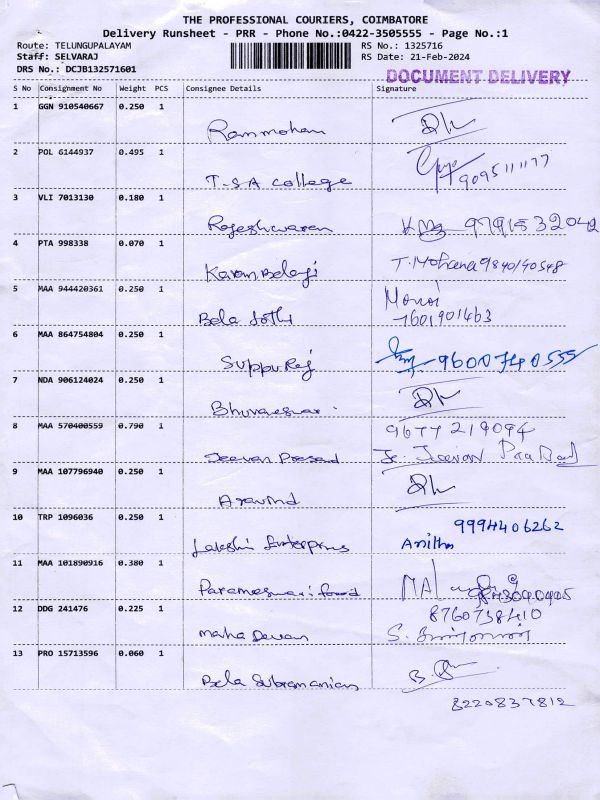 THE PROFESSIONAL COURIERS, COIMBATORE
Delivery Runsheet - PRR - Phone No.:0422-3505555 - Page No.:1
Route: TELUNGUPALAYAM RS No.: 1325716
Staff: SELVARAJ RS Date: 21-Feb-2024
DRS No.: DCJB132571601
DOCUMENT DELIVERY
S No Consignment No Weight PCS Consignee Details Signature
1 GGN 910540667 0.250 1
Rammohan
2 POL 6144937 0.495 1
T.S.A College 9095111177
3 VLI 7013130 0.180 1
Rajeshwaran 9791532042
4 PTA 998338 0.070 1
Karam Belaji T. Mohana 9840140548
5 MAA 944420361 0.250 1
Bela Jothi 7601901463
6 MAA 864754804 0.250 1
Suppu Raj 9600740555
7 NDA 906124024 0.250 1
Bhuvaneswari
8 MAA 570400559 0.790 1 9677219094
Jeevan Prasad
9 MAA 107796940 0.250 1
Aravind
10 TRP 1096036 0.250 1 9994406262
Lakshi Enterprises Anitha
11 MAA 101890916 0.380 1
Parameswari food
12 DDG 241476 0.225 1 8760738410
Maha Devan
13 PRO 15713596 0.060 1
Bela Subramaniam
8220837812